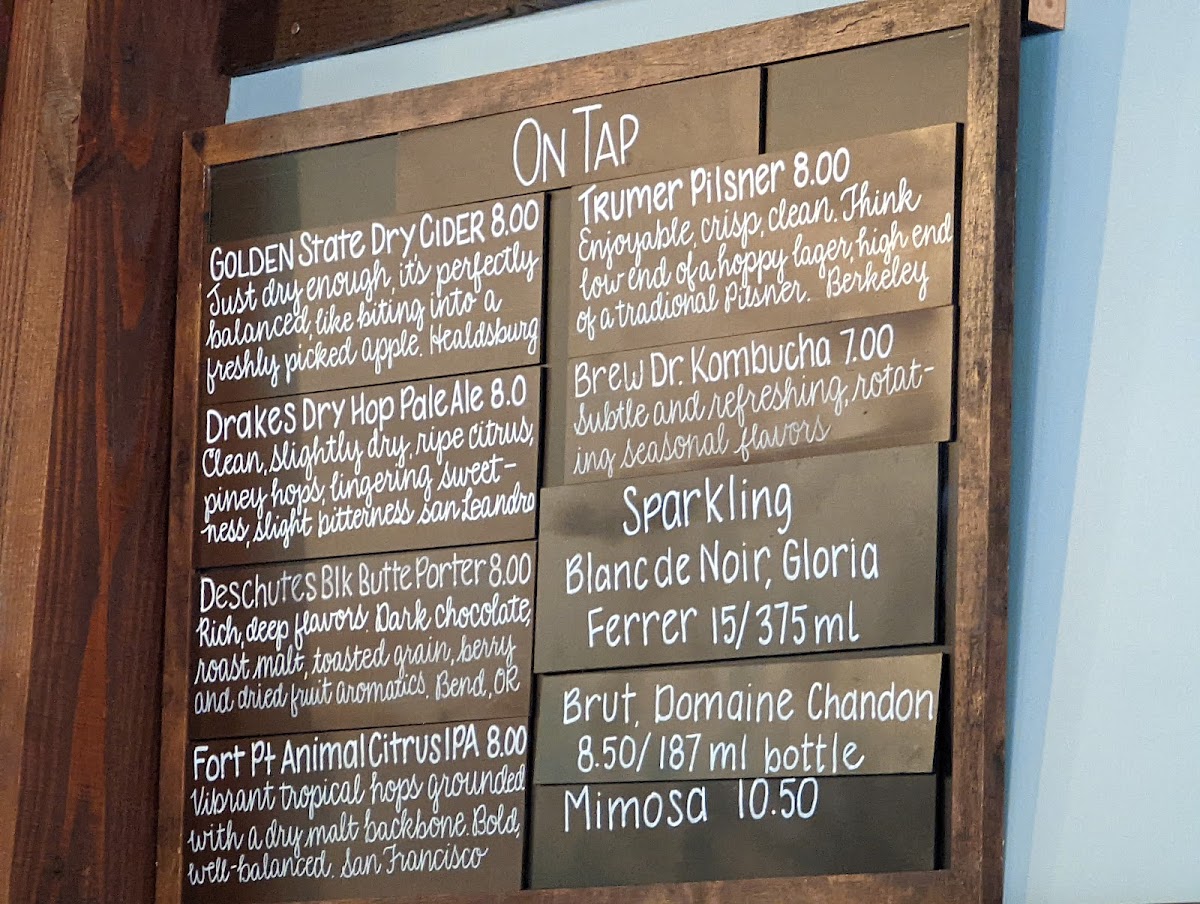 ON TAP
GOLDEN State Dry CIDER 8.00
Just dry enough, it's perfectly
balanced, like biting into a
freshly picked apple. Healdsburg
Drakes Dry Hop Pale Ale 8.0
Clean, slightly dry, ripe citrus,
piney hops, lingering sweet-
ness, slight bitterness San Leandro
Deschutes Blk Butte Porter 8.00
Rich, deep flavors. Dark chocolate,
roast malt, toasted grain, berry
and dried fruit aromatics. Bend, OR
Fort Pt Animal Citrus IPA 8.00
Vibrant tropical hops grounded
with a dry malt backbone. Bold,
well-balanced. San Francisco
Trumer Pilsner 8.00
Enjoyable, crisp, clean. Think
low end of a hoppy lager, high end
of a tradional Pilsner. Berkeley
Brew Dr. Kombucha 7.00
Subtle and refreshing, rotat-
ing seasonal flavors
Sparkling
Blanc de Noir, Gloria
Ferrer 15/375 ml
Brut, Domaine Chandon
8.50/187 ml bottle
Mimosa 10.50